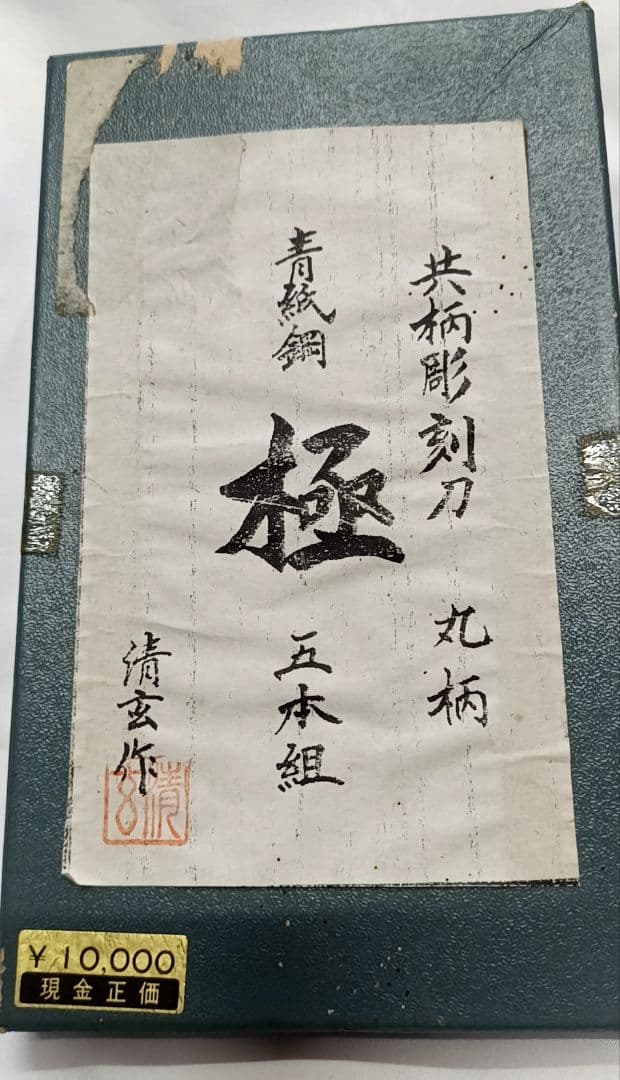 共柄彫刻刀 丸柄
青紙鋼 極 五本組
清玄作
清玄
￥10,000
現金正価